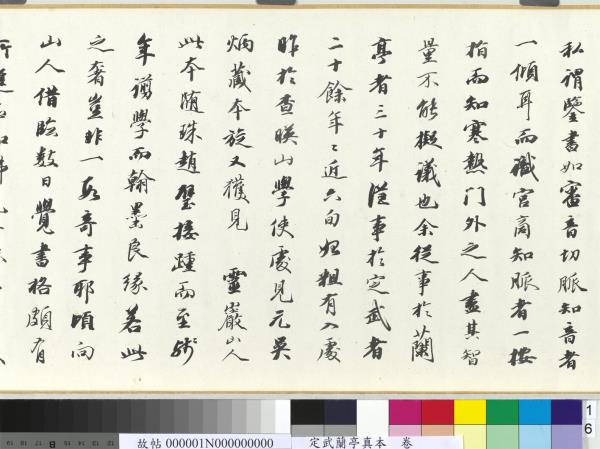 私謂鑒書如審音切脈知音者
一傾耳而識宮商知脈者一按
指而知寒熱门外之人盡其智
量不能擬議也余從事於蘭
亭者三十年從事於定武者
二十餘年〻近六旬始粗有入處
昨於查暎山學使處見元吳
炳藏本旋又獲見 靈巖山人
此本隨珠趙璧接踵而至
年謭學而翰墨良緣若此
之奢豈非一段奇事耶頃向
山人借臨數日覺書格頗有
所進
故帖 000001N000000000 定武蘭亭真本 卷
16